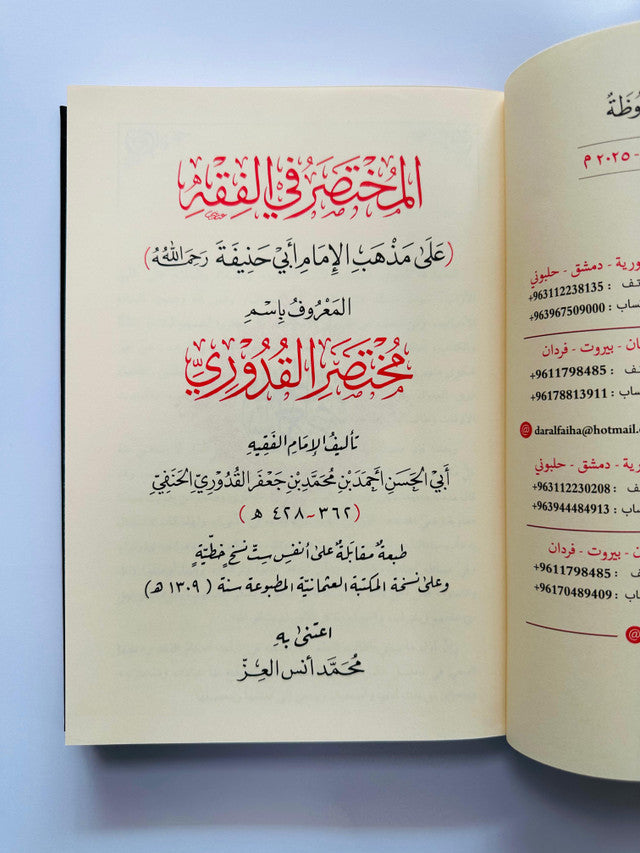 المُخْتَصَرُ فِي الفِقْهِ
(عَلَى مَذْهَبِ الإِمَامِ أَبِي حَنِيفَةَ رَحِمَهُ اللهُ)
المَعْرُوفُ بِاسْمِ
مُخْتَصَرِ القُدُورِيِّ
تأليفُ الإمَامِ الفَقِيهِ
أَبِي الحَسَنِ أَحْمَدَ بْنِ مُحَمَّدِ بْنِ جَعْفَرٍ القُدُورِيِّ الحَنَفِيِّ
(٣٦٢ - ٤٢٨ هـ)
طبعةٌ مقابَلةٌ على أنفسِ ستِّ نسخٍ خطيّةٍ
وعلى نسخة المكتبة العثمانية المطبوعة سنة (١٣٠٩ هـ)
اعتنى به
مُحَمَّد أنس العِزّ
- ٢٠٢٥ م
دمشق - حلبوني
+963112238135 :
+963967509000 :
بيروت - فردان
+9611798485 :
+96178813911 :
@ daralfaiha@hotmail.
دمشق - حلبوني
+963112230208 :
+963944484913 :
بيروت - فردان
+9611798485 :
+96170489409 :
@